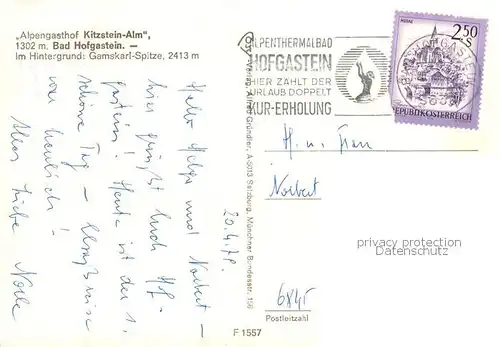 „Alpengasthof Kitzstein-Alm",
1302 m. Bad Hofgastein. —
Im Hintergrund: Gamskarl-Spitze, 2413 m
ALPENTHERMALBAD
HOFGASTEIN
HIER ZÄHLT DER
URLAUB DOPPELT
KUR-ERHOLUNG
2.50
S
MURAU
REPUBLIK ÖSTERREICH
Hallo Helga und Norbert –
hier grüßt Euch Hof-
gastein! Heute ist der 1.
schöne Tag –
war herrlich!
Alles Liebe
20.4.78.
Verlag Alfred Gründler, A-5013 Salzburg, Münchner Bundesstr. 156
H. u. Frau
Norbert
6845
Postleitzahl
F 1557
privacy protection
Datenschutz